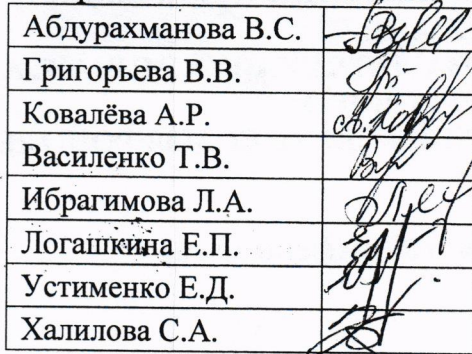 Абдурахманова В.С.
Григорьева В.В.
Ковалёва А.Р.
Василенко Т.В.
Ибрагимова Л.А.
Логашкина Е.П.
Устименко Е.Д.
Халилова С.А.